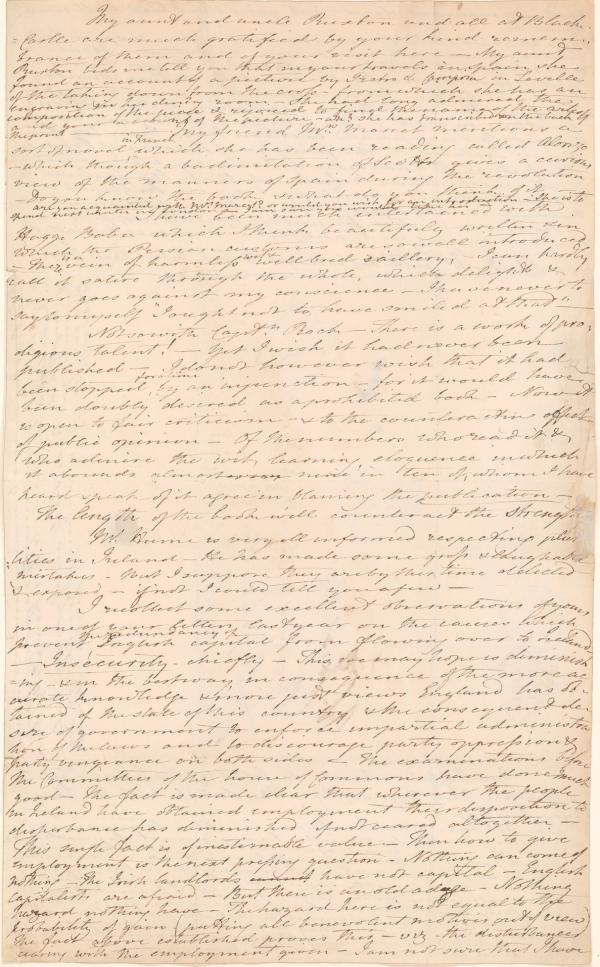 My aunt and uncle Ruxton and all at Black-
=Castle are much gratified by your kind remem-
brance of them and of your visit here – My aunt
Ruxton bids me tell you that in your travels in Spain she
found an account of a picture by Pedro de Campana in Seville
of the taking down from the cross – from which she has an
engraving in her dining room – She had long admired the
composition of the piece & rejoiced to find the name of the artist
and your of the picture – and she has transcribed on the back of
the print
My friend Mrs. Marcet mentions a
sort of novel in French which she has been reading called Alonzo
– which though a bad imitation of Scott gives a curious
view of the manners of Spain during the revolution
– Do you know the book & what do you think of it
are you acquainted with Mrs. Marcet? or would you wish for an introduction – She is to
spend next winter in London
I have been much entertained with
Haggi Baba which I think beautifully written & in
which the Persian customs are so well introduced
– There is a vein of harmless & well bred raillery, I can hardly
call it satire through the whole, which delights &
never goes against my conscience – I have never to
say to myself "I ought not to have smiled at that"
Not so with Captn. Rock – There is a work of pro-
digious talent! – Yet I wish it had never been
published – I do not however wish that it had
been stopped by an injunction – for it would have
been doubly desired as a prohibited book – Now it
is open to fair criticism & to the counteracting effect
of public opinion – Of the numbers who read it &
who admire the wit, learning eloquence in which
it abounds almost nine in ten of whom I have
heard speak of it agree in blaming the publication –
The length of the book will counteract the strength
Mr. Hume is very ill informed respecting plu-
lities in Ireland – He has made some gross & laughable
mistakes – But I suppose they are by this time detected
& exposed – if not I could tell you a few –
I recollect some excellent observations of yours
in one of your letters, last year on the causes which
prevent the redundancy of English capital from flowing over to Ireland
– Insecurity – chiefly – This we may hope is diminish
=ing – & in the best way in consequence of the more ac
curate knowledge & more just views England has ob-
tained of the state of this country & the consequent de-
sire of government to enforce impartial administra
tion of the laws and to discourage party oppression &
party vengeance on both sides – The examinations before
the Committees of the house of Commons have done much
good – The fact is made clear that wherever the people
in Ireland have obtained employment their disposition to
disturbance has diminished if not ceased altogether –
This single fact is of inestimable value – Then how to give
employment is the next pressing question – Nothing can come of
nothing – The Irish landlords have not capital – English
capitalists are afraid – But there is an old adage – Nothing
hazard nothing have – The hazard here is not equal to the
probability of gain (putting all benevolent motives out of view)
The fact above established proves this – viz – the disturbances
ceasing with the employment given – I am not sure that I have